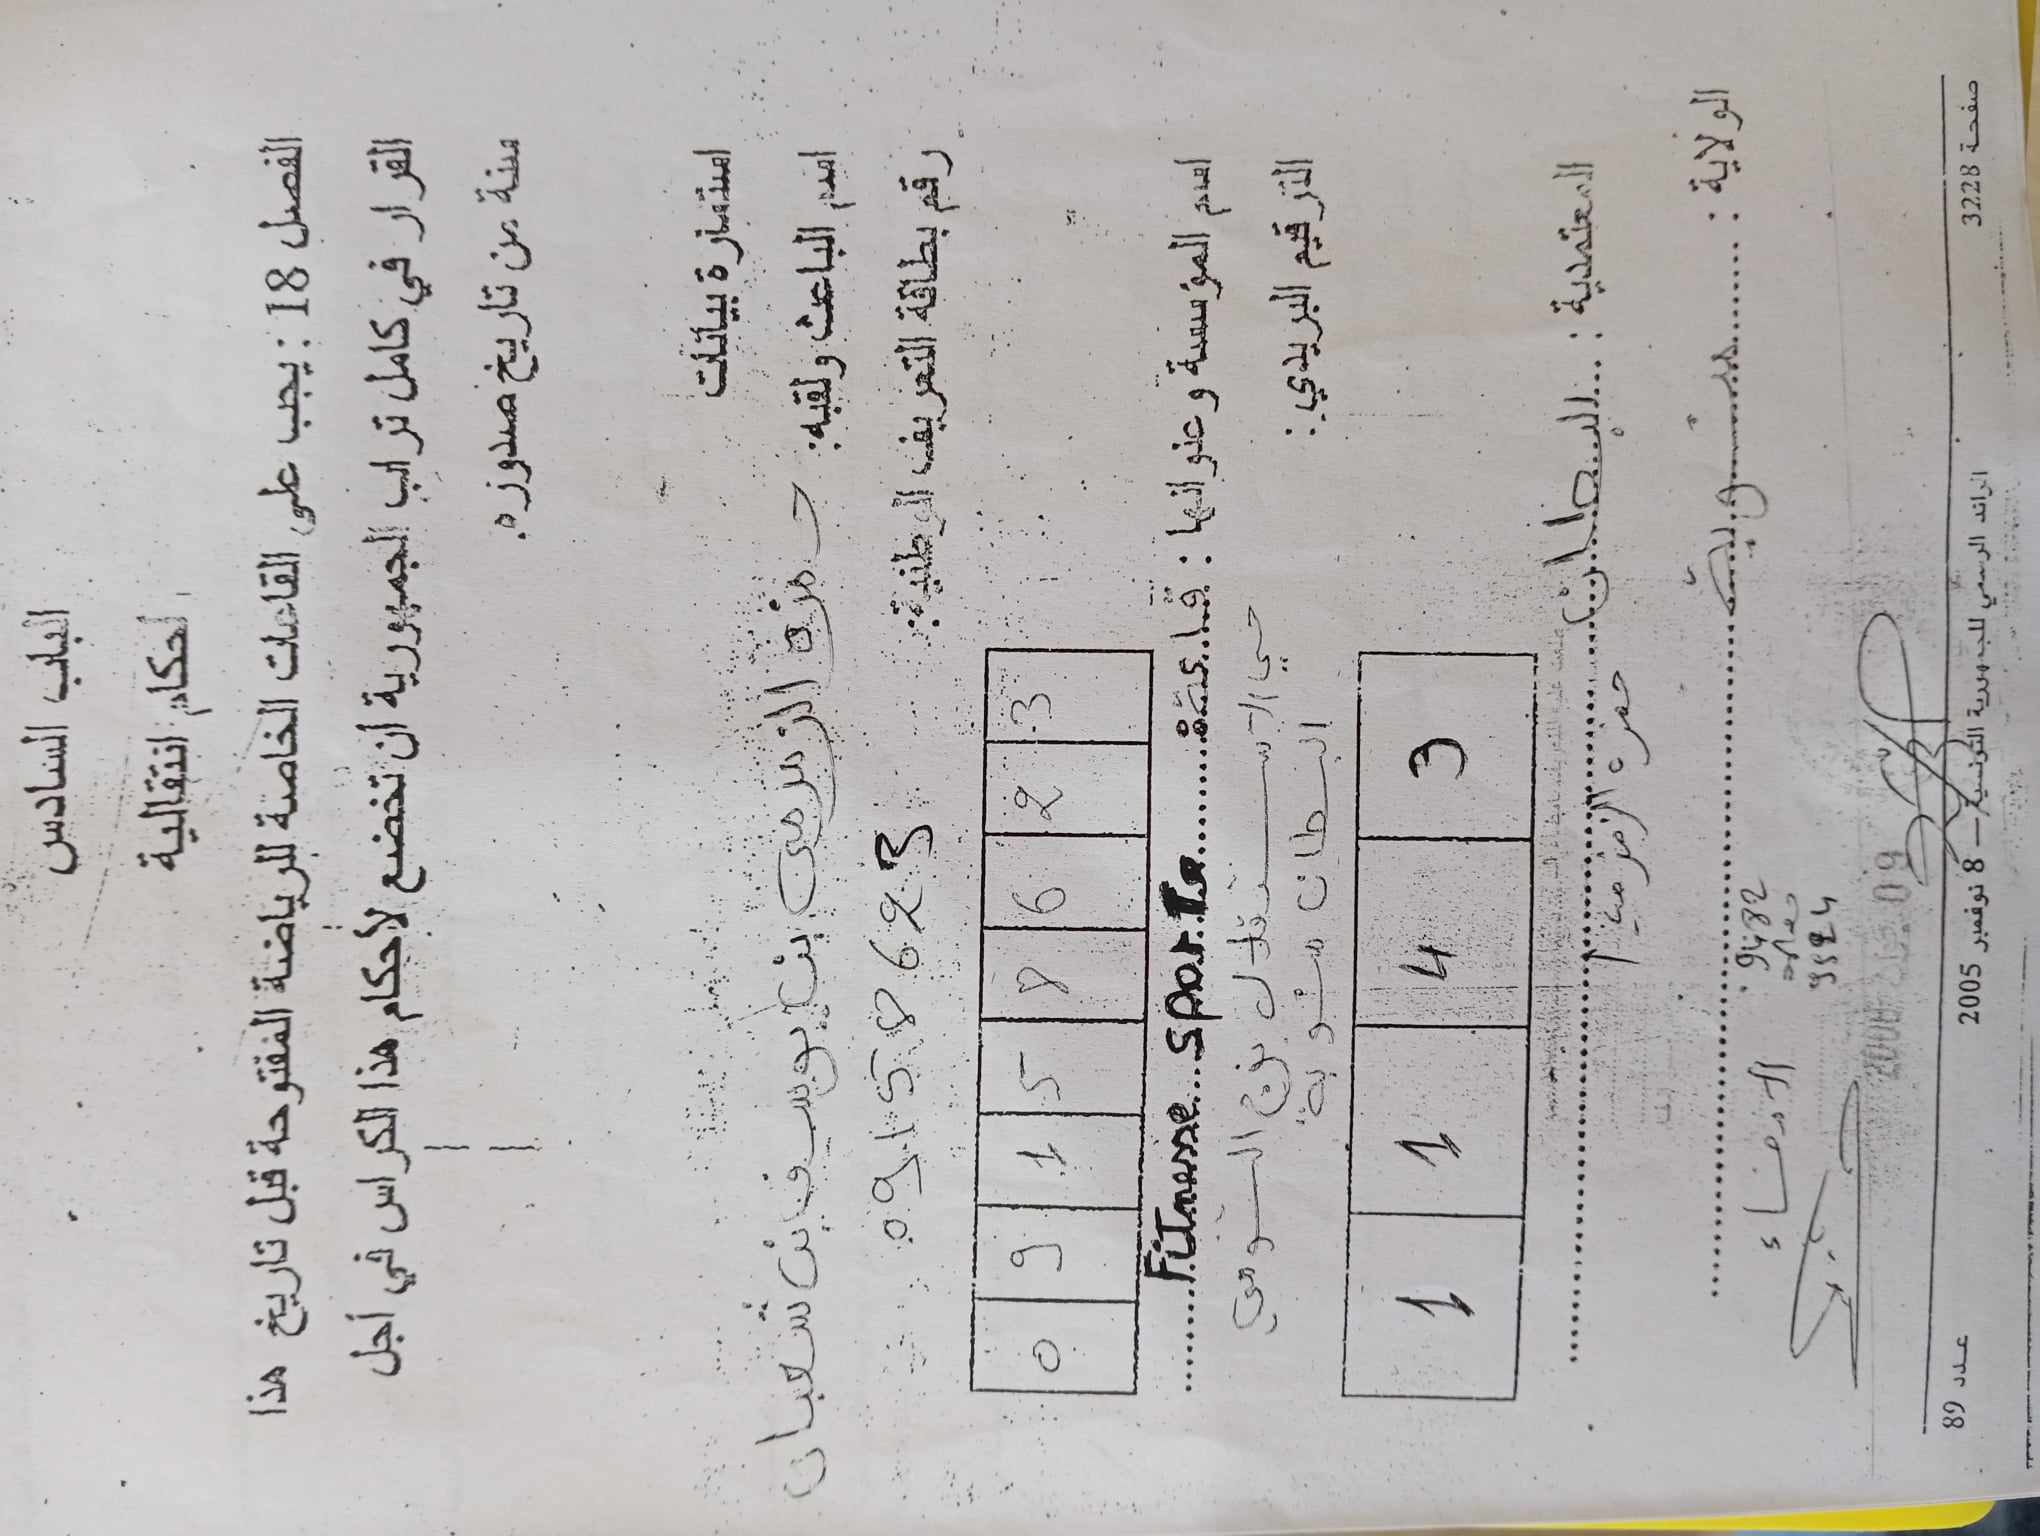 الباب السادس
أحكام انتقالية
الفصل 18 : يجب على القاعات الخاصة للرياضة المفتوحة قبل تاريخ هذا
القرار في كامل تراب الجمهورية أن تخضع لأحكام هذا الكراس في أجل
سنة من تاريخ صدوره.
استمارة بيانات
اسم الباعث ولقبه: حمزة الزمزمي بن يوسف بن شعبان
رقم بطاقة التعريف الوطنية: 09158623
0 9 1 5 8 6 2 3
اسم المؤسسة وعنوانها : قاعة Fitnesse sparta
حي الاستقلال نهج السومي
البطان منوبة
الترقيم البريدي:
1 1 4 3
المعتمدية : البطان
حمزة الزمزمي
الولاية : منوبة
الامضاء
عدد 89 الرائد الرسمي للجمهورية التونسية — 8 نوفمبر 2005 صفحة 3228